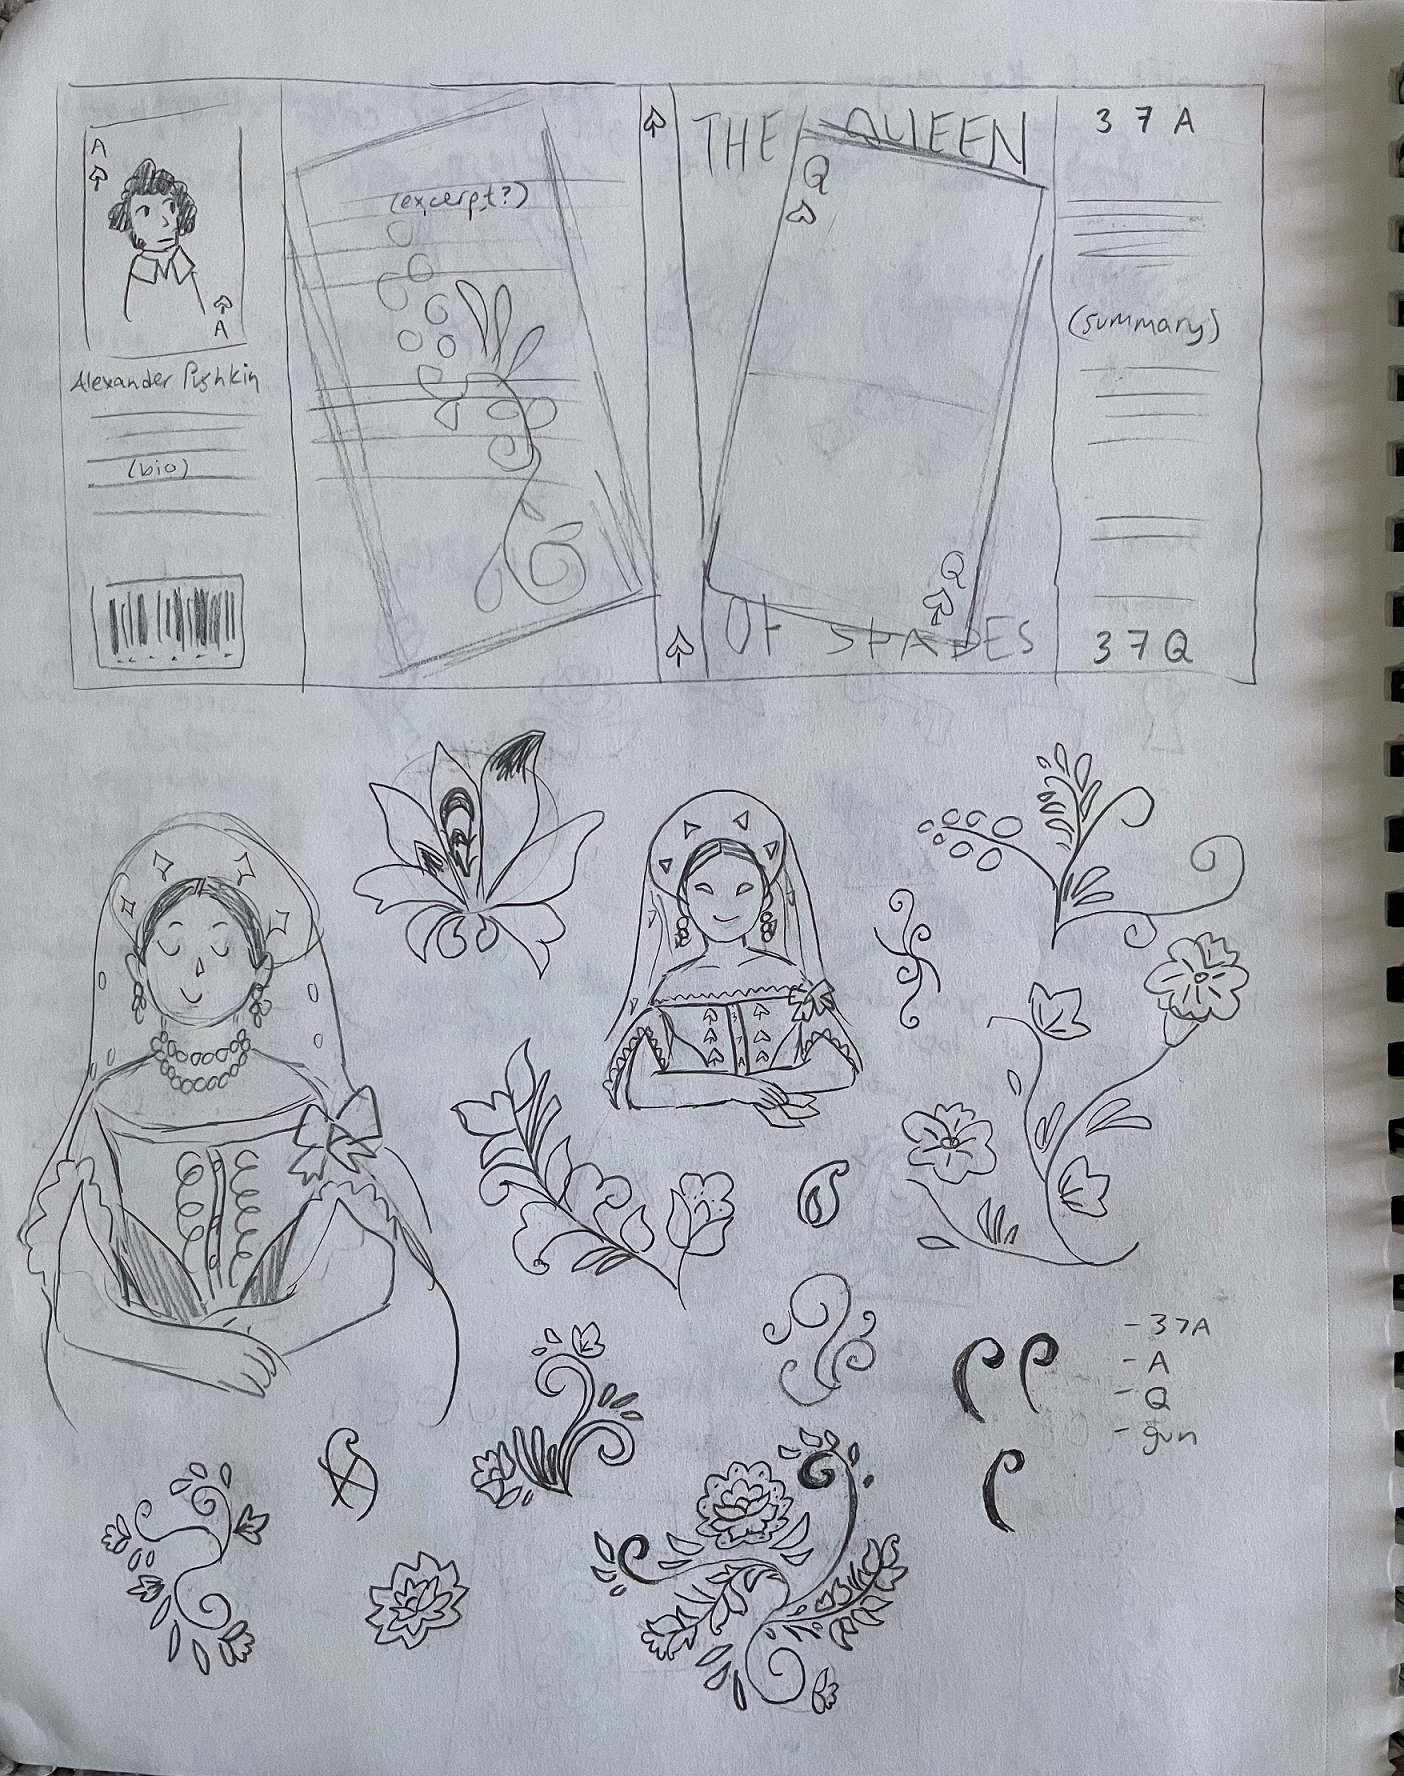 A
A
Alexander Pushkin
(bio)
(excerpt?)
THE QUEEN
Q
Q
OF SPADES
3 7 A
(summary)
3 7 Q
3
7
A
- 37A
- A
- Q
- gun